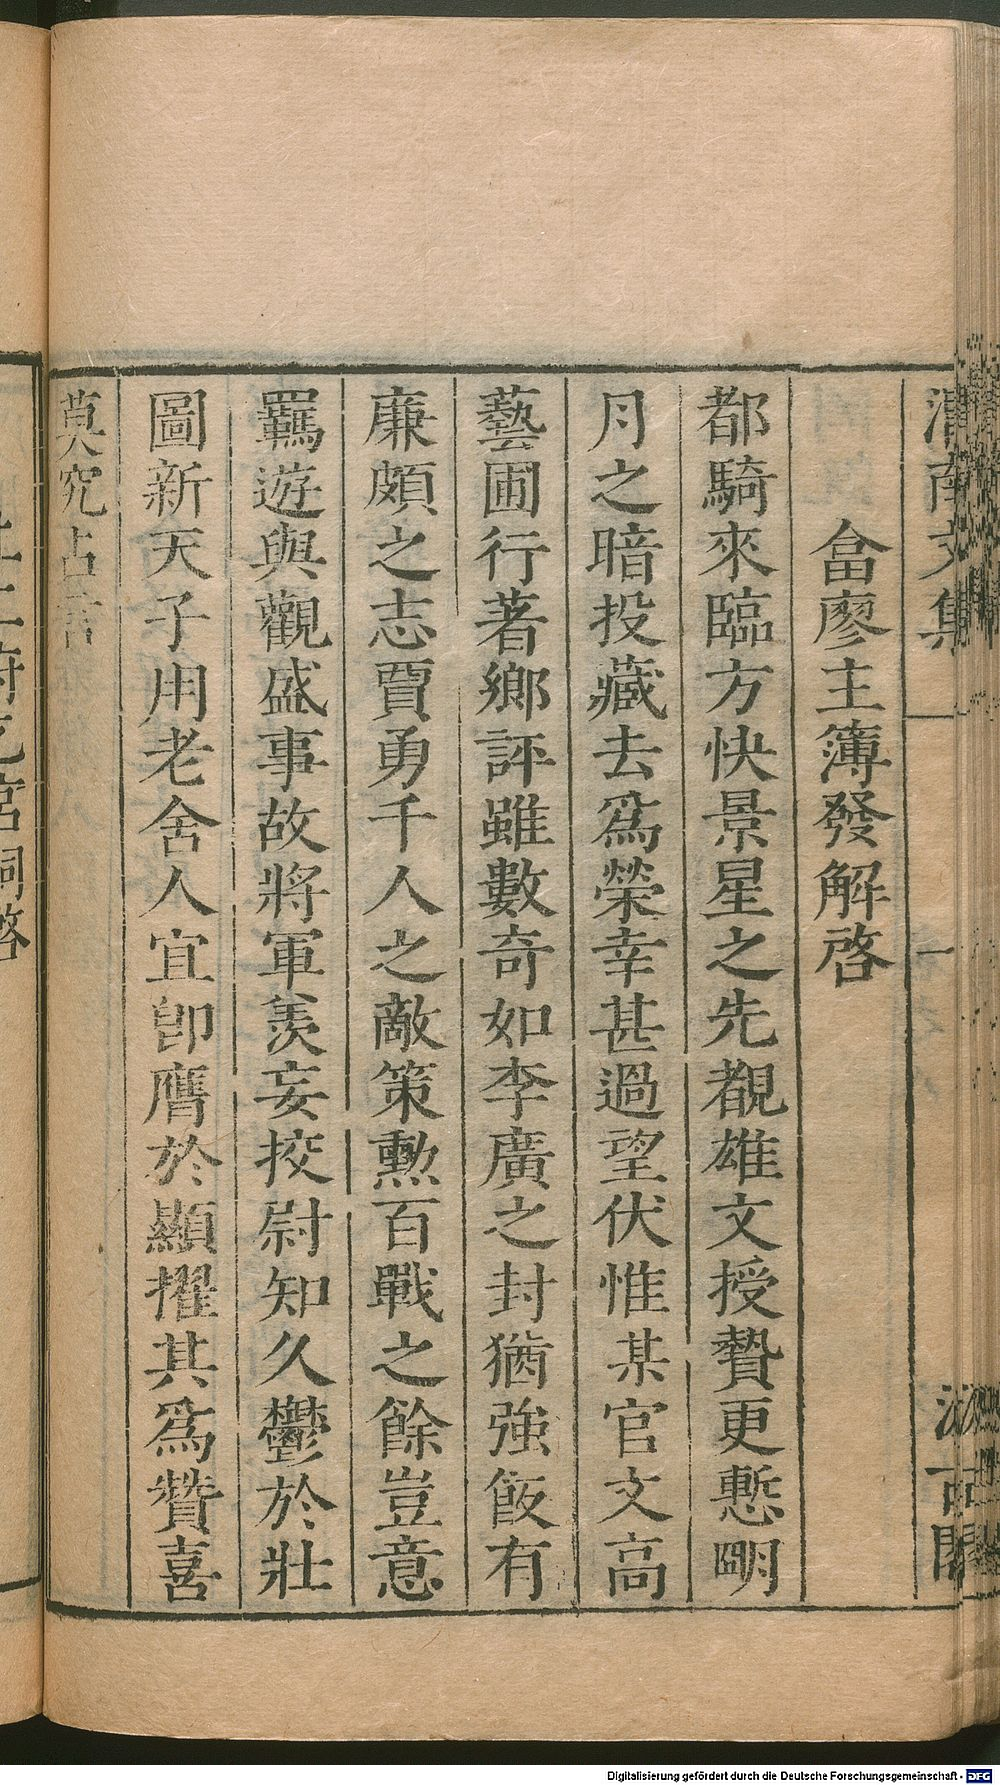 渭南文集
一
汲古閣
畣廖主簿發解啓
都騎來臨方快景星之先覩雄文授贄更慙朙
月之暗投藏去爲榮幸甚過望伏惟某官文高
藝圃行著鄉評雖數奇如李廣之封猶強飯有
廉頗之志賈勇千人之敵策勲百戰之餘豈意
羈遊與觀盛事故將軍羨妄挍尉知久鬱於壯
圖新天子用老舍人宜卽膺於顯擢其爲贊喜
莫究占言
Digitalisierung gefördert durch die Deutsche Forschungsgemeinschaft - DFG